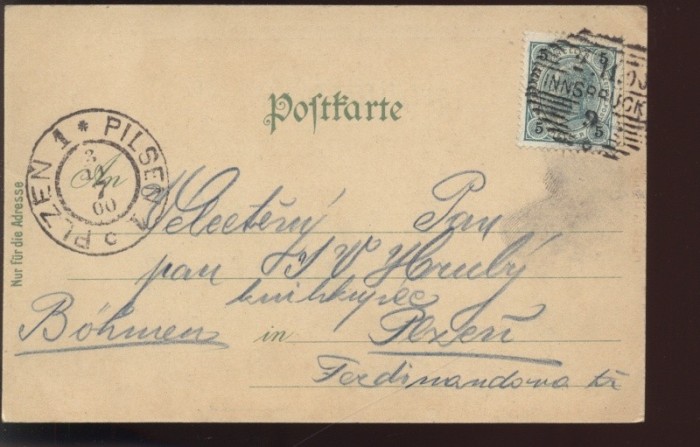 Postkarte
INNSBRUCK
PLZEN 1 * PILSEN 1
An
Velectěný Pan
pan V Hrubý
knihkupec
Böhmen in Plzeň
Ferdinandova tř
Nur für die Adresse
5 5
5 5